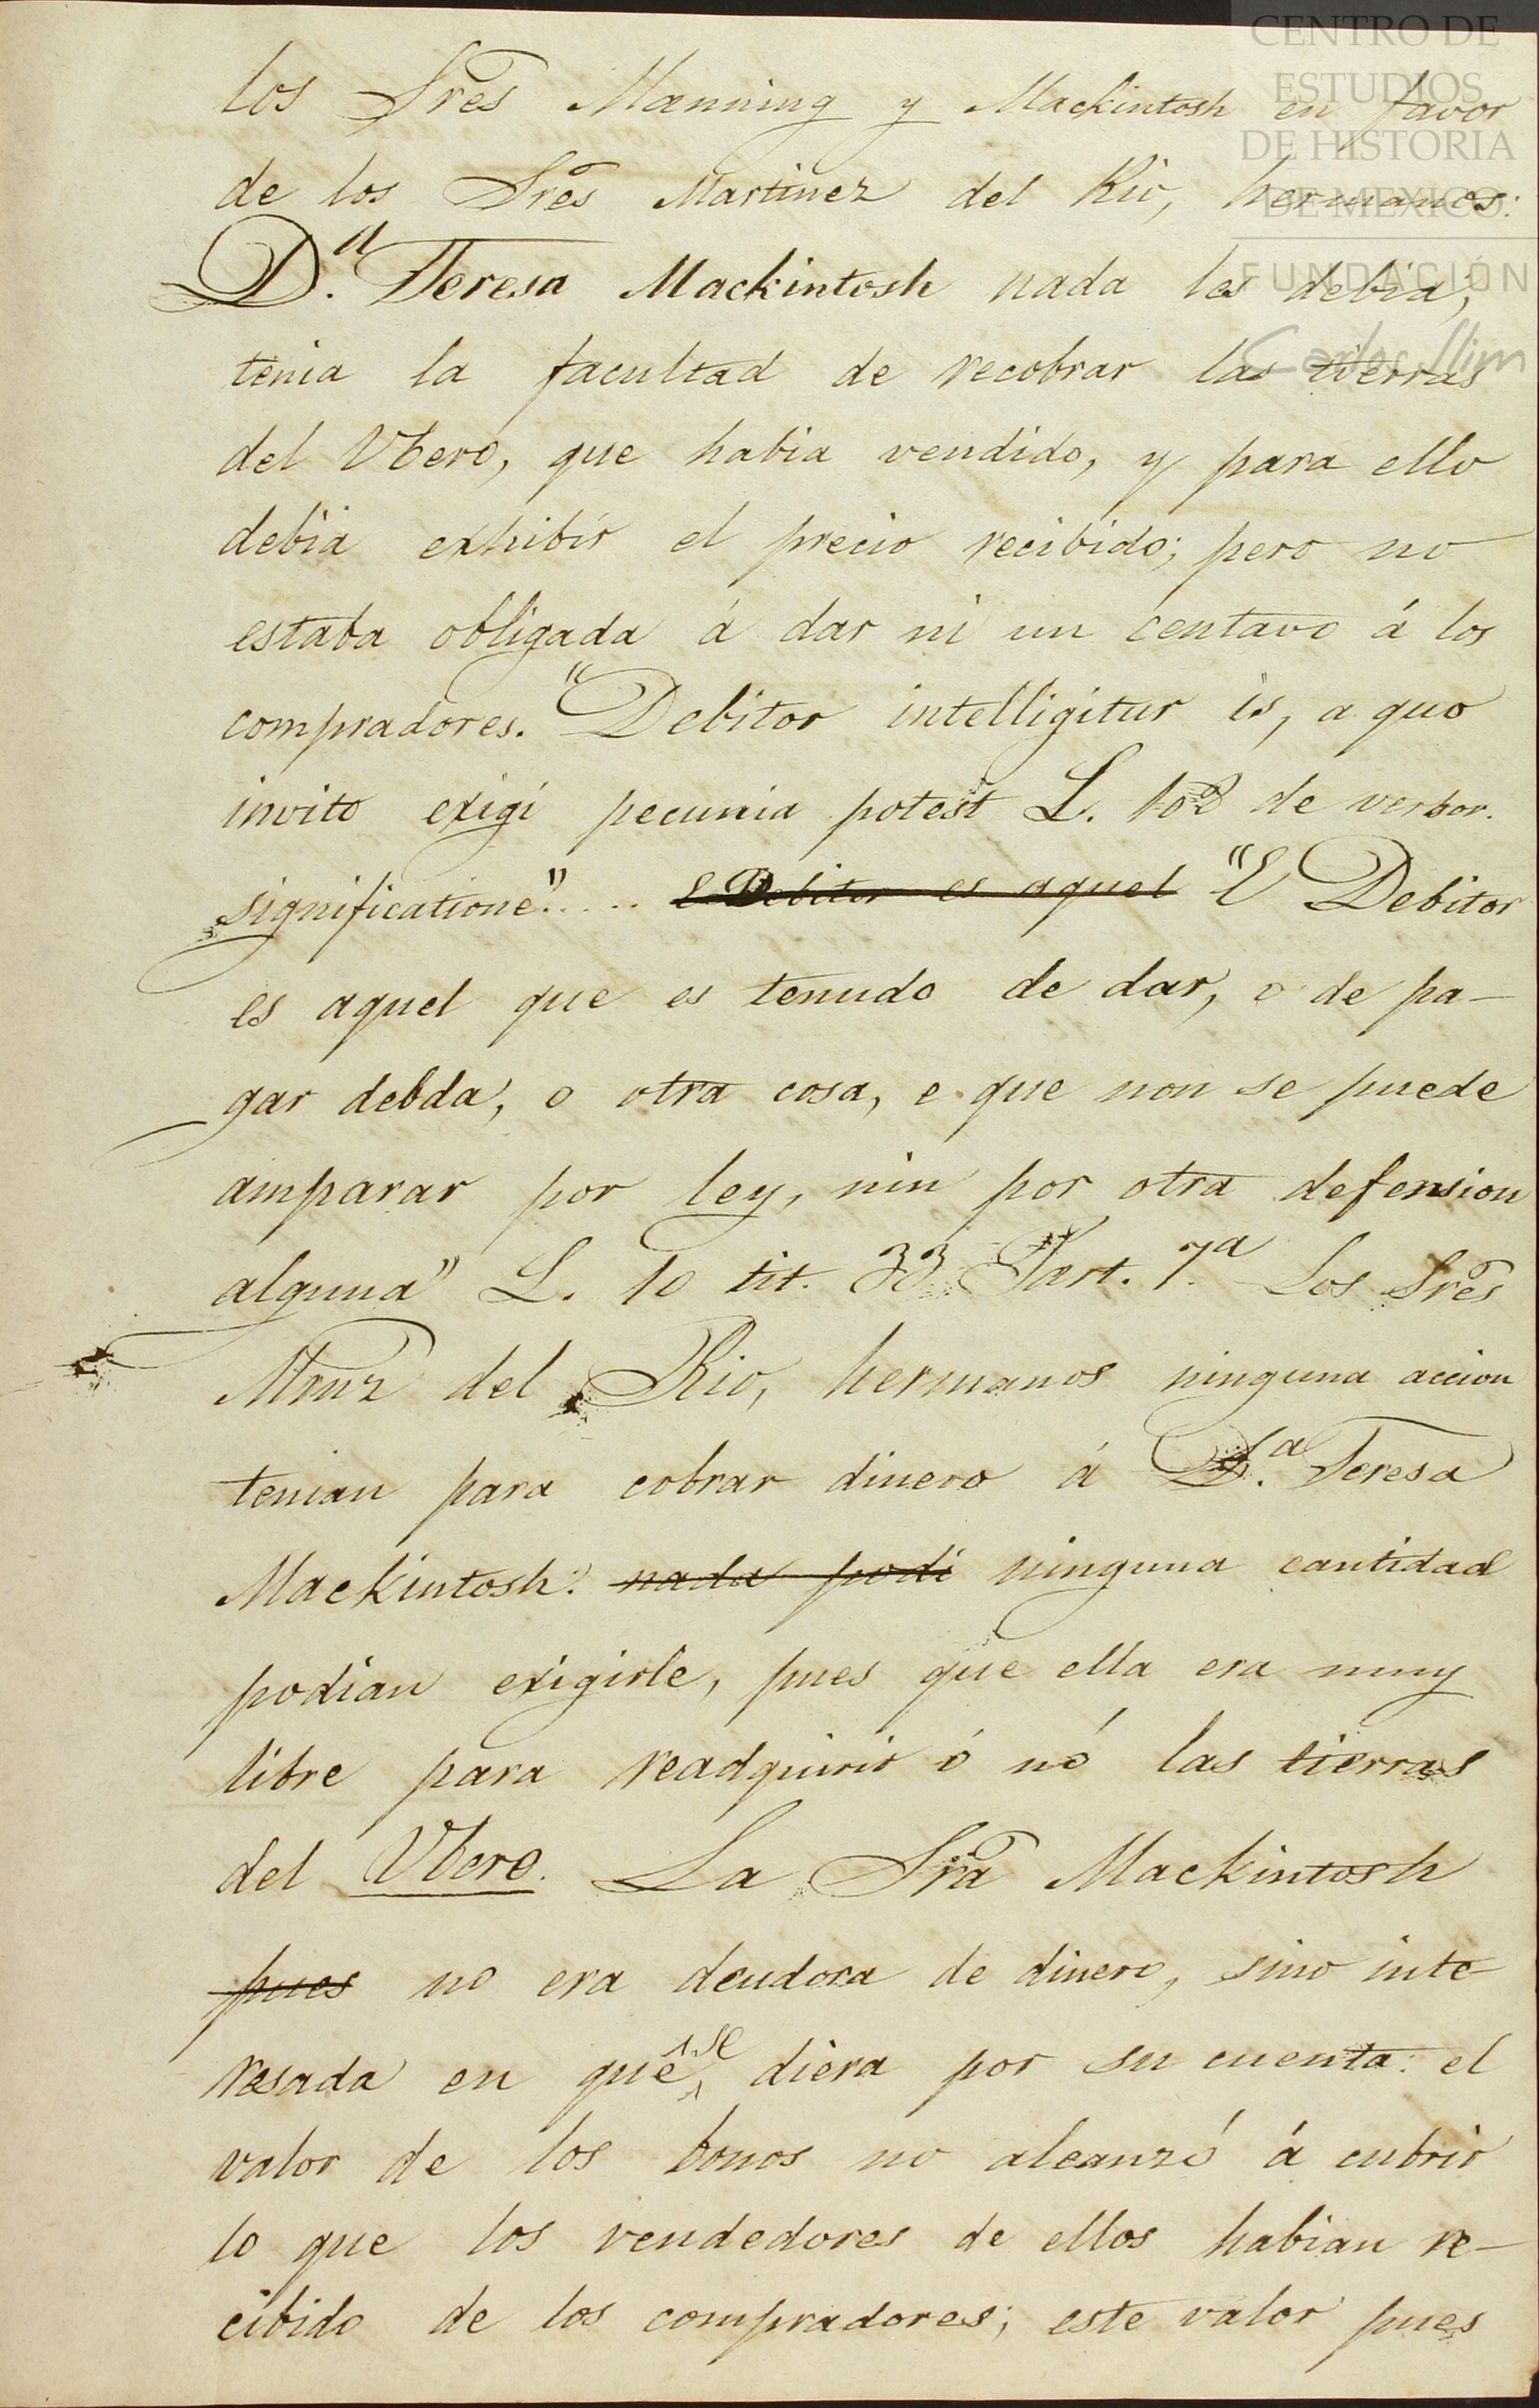 CENTRO DE
ESTUDIOS
DE HISTORIA
DE MEXICO.
FUNDACIÓN
Carlos Slim
los Sres Manning y Mackintosh en favor
de los Sres Martinez del Rio, hermanos:
D.ª Teresa Mackintosh nada les debia;
tenia la facultad de recobrar las tierras
del Vbero, que habia vendido, y para ello
debia exhibir el precio recibido; pero no
estaba obligada á dar ni un centavo á los
compradores. "Debitor intelligitur is, a quo
invito exigi pecunia potest L. 108 de verbor.
significatione"..... E Debitor es aquel "E Debitor
es aquel que es tenudo de dar, o de pa-
gar debda, o otra cosa, e que non se puede
amparar por ley, nin por otra defension
alguna" L. 10 tit. 33 Part. 7.ª Los Sres
Mrnz del Rio, hermanos ninguna accion
tenian para cobrar dinero á D.ª Teresa
Mackintosh: nada podi ninguna cantidad
podian exigirle, pues que ella era muy
libre para readquirir ó nó las tierras
del Vbero. La Sra Mackintosh
pues no era deudora de dinero, sino inte-
resada en que se diera por su cuenta: el
valor de los bonos no alcanzó á cubrir
lo que los vendedores de ellos habian re-
cibido de los compradores; este valor pues